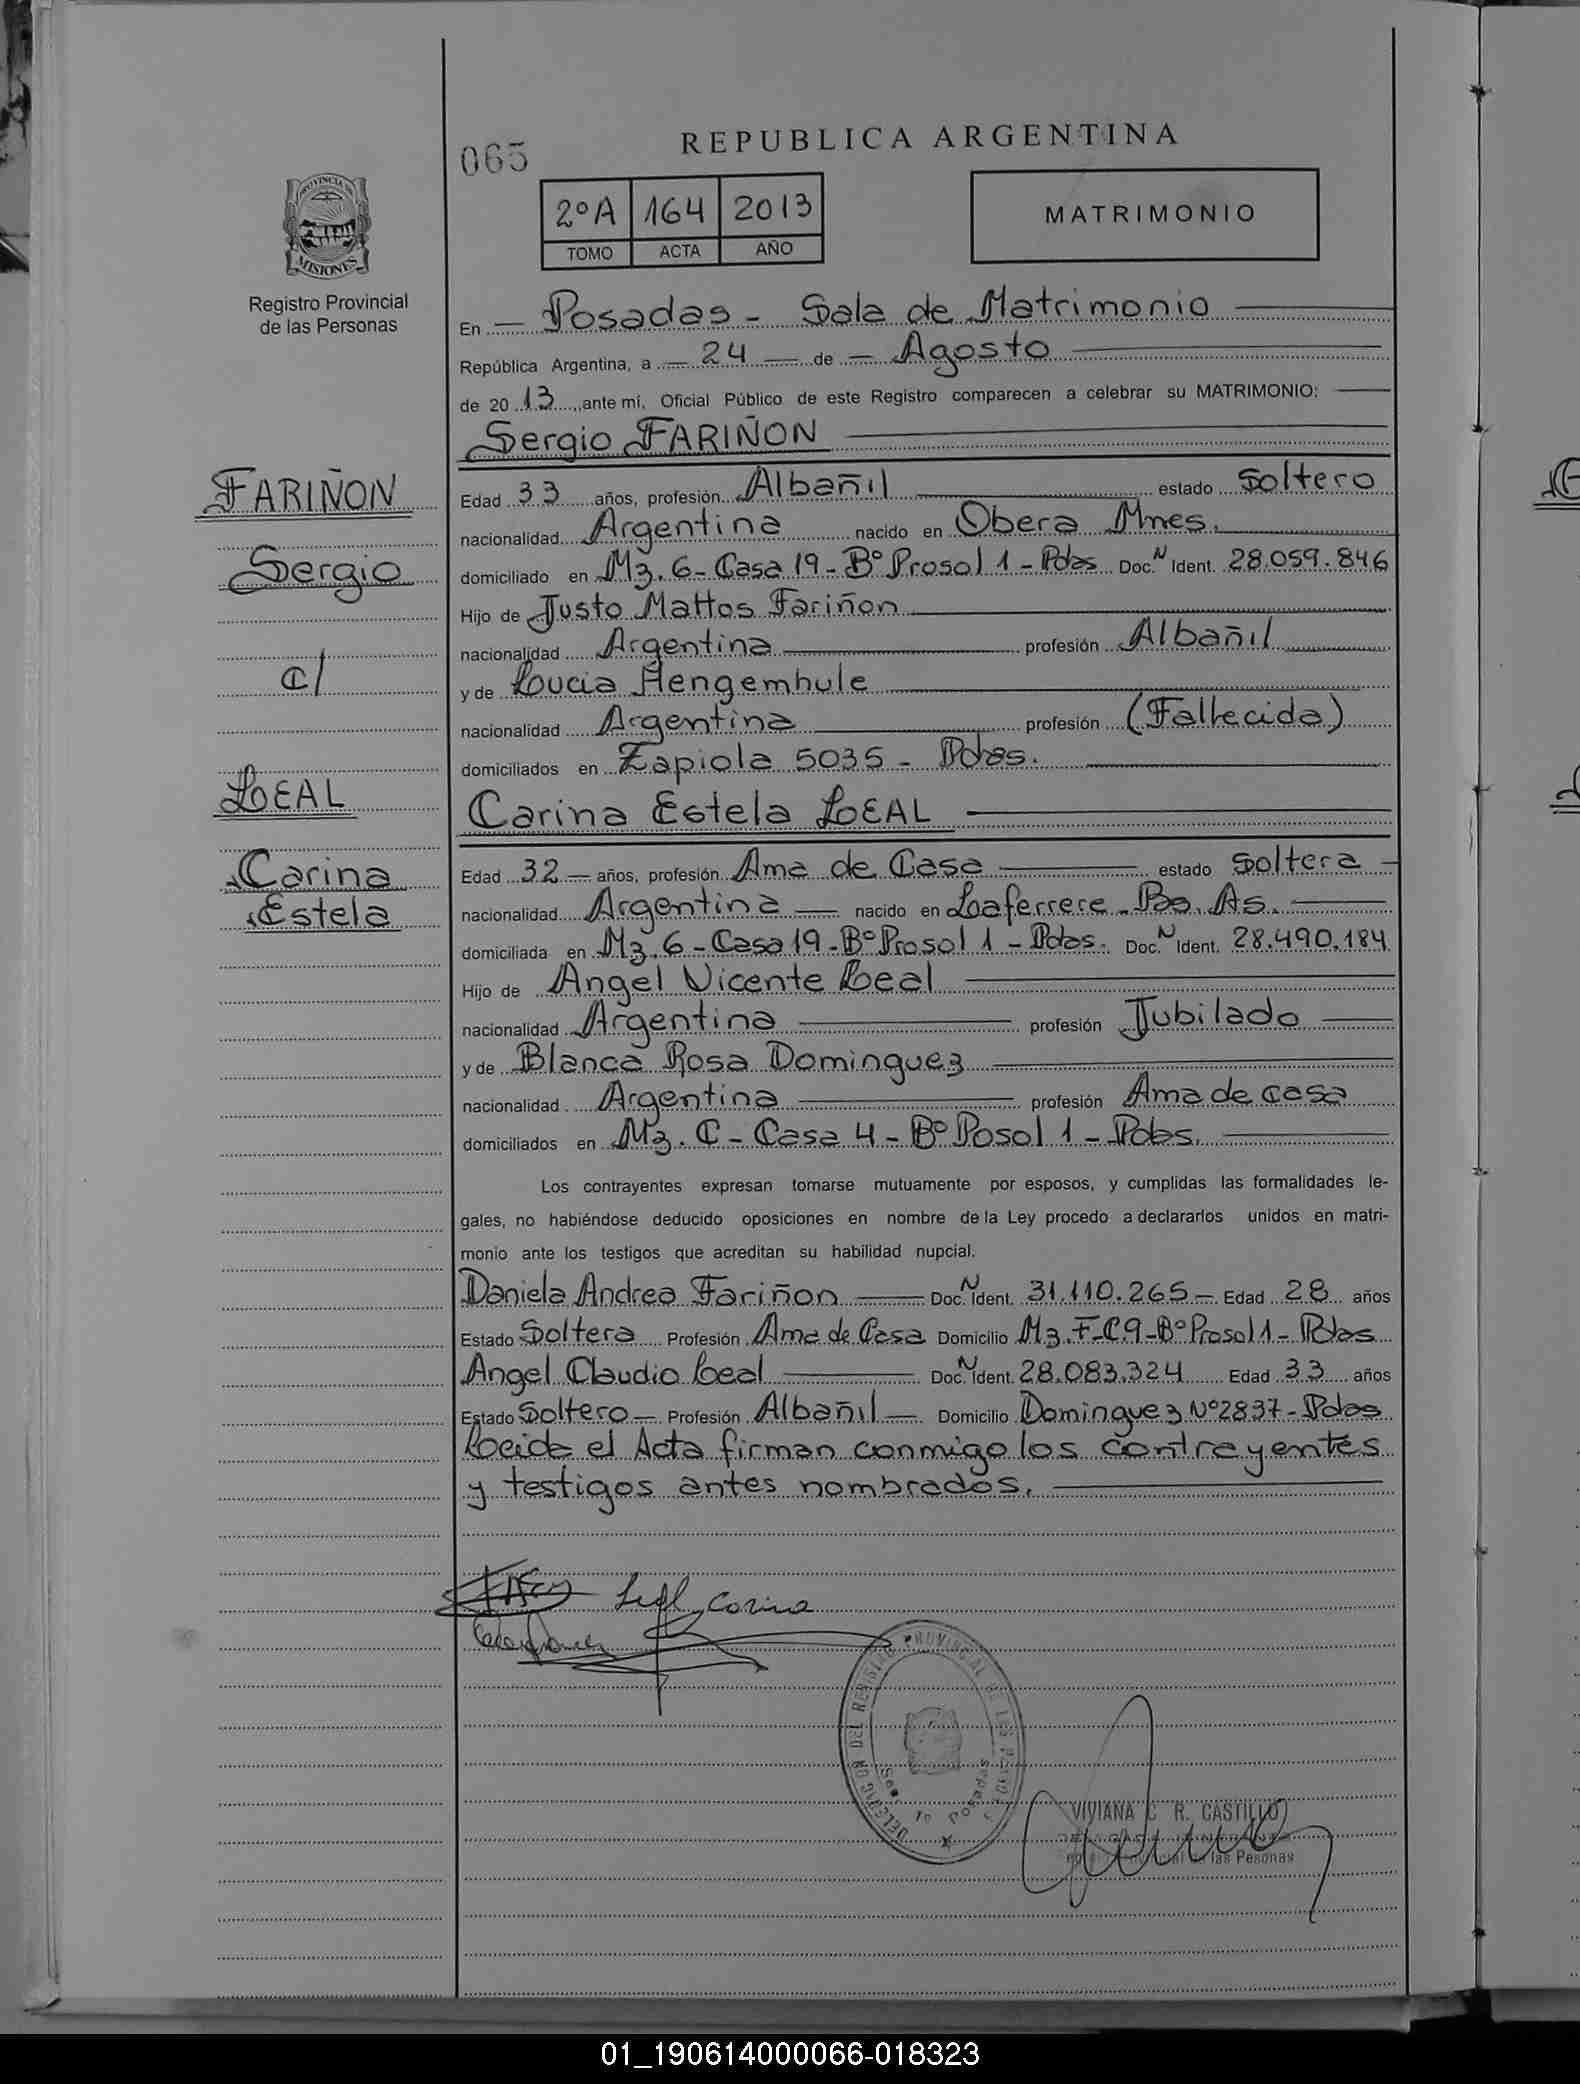 065
REPUBLICA ARGENTINA
2ºA 164 2013
TOMO ACTA AÑO
MATRIMONIO
PROVINCIA DE
MISIONES
Registro Provincial
de las Personas
En Posadas - Sala de Matrimonio
República Argentina, a 24 de Agosto
de 20 13 ante mí, Oficial Público de este Registro comparecen a celebrar su MATRIMONIO:
Sergio FARIÑON
FARIÑON
Sergio
c/
LEAL
Carina
Estela
Edad 33 años, profesión Albañil estado Soltero
nacionalidad Argentina nacido en Obera Mnes.
domiciliado en Mz. 6 - Casa 19 - Bº Prosol 1 - Pdas Doc. N Ident. 28.059.846
Hijo de Justo Mattos Fariñon
nacionalidad Argentina profesión Albañil
y de Lucia Hengemhule
nacionalidad Argentina profesión (Fallecida)
domiciliados en Zapiola 5035 - Pdas.
Carina Estela LEAL
Edad 32 años, profesión Ama de Casa estado Soltera
nacionalidad Argentina nacido en Laferrere - Bs. As.
domiciliada en Mz. 6 - Casa 19 - Bº Prosol 1 - Pdas. Doc. N Ident. 28.490.184
Hijo de Angel Vicente Leal
nacionalidad Argentina profesión Jubilado
y de Blanca Rosa Dominguez
nacionalidad Argentina profesión Ama de casa
domiciliados en Mz. C - Casa 4 - Bº Posol 1 - Pdas.
Los contrayentes expresan tomarse mutuamente por esposos, y cumplidas las formalidades le-
gales, no habiéndose deducido oposiciones en nombre de la Ley procedo a declararlos unidos en matri-
monio ante los testigos que acreditan su habilidad nupcial.
Daniela Andrea Fariñon Doc. N Ident. 31.110.265 - Edad 28 años
Estado Soltera Profesión Ama de Casa Domicilio Mz. F - C. 9 - Bº Prosol 1 - Pdas
Angel Claudio Leal Doc. N Ident. 28.083.324 Edad 33 años
Estado Soltero Profesión Albañil Domicilio Dominguez Nº 2837 - Pdas
Leida el Acta firman conmigo los contrayentes
y testigos antes nombrados.
Leal Carina
DELEGACION DEL REGISTRO PROVINCIAL DE LAS PERSONAS
Posadas
VIVIANA C. R. CASTILLO
las Pesonas
01_190614000066-018323